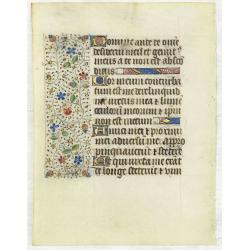 Domine ante te omne
desiderium meum et gemit
meus a te non est absco
ditus
Cor meum conturba
tum est me dereliquit
me virtus mea et lumen
oculorum meorum et ipm
non est mecum
Amici mei et proxi
mi mei adversum me appro
pinquaverunt et steterunt
Et qui iuxta me erat
de longe steterunt et vim